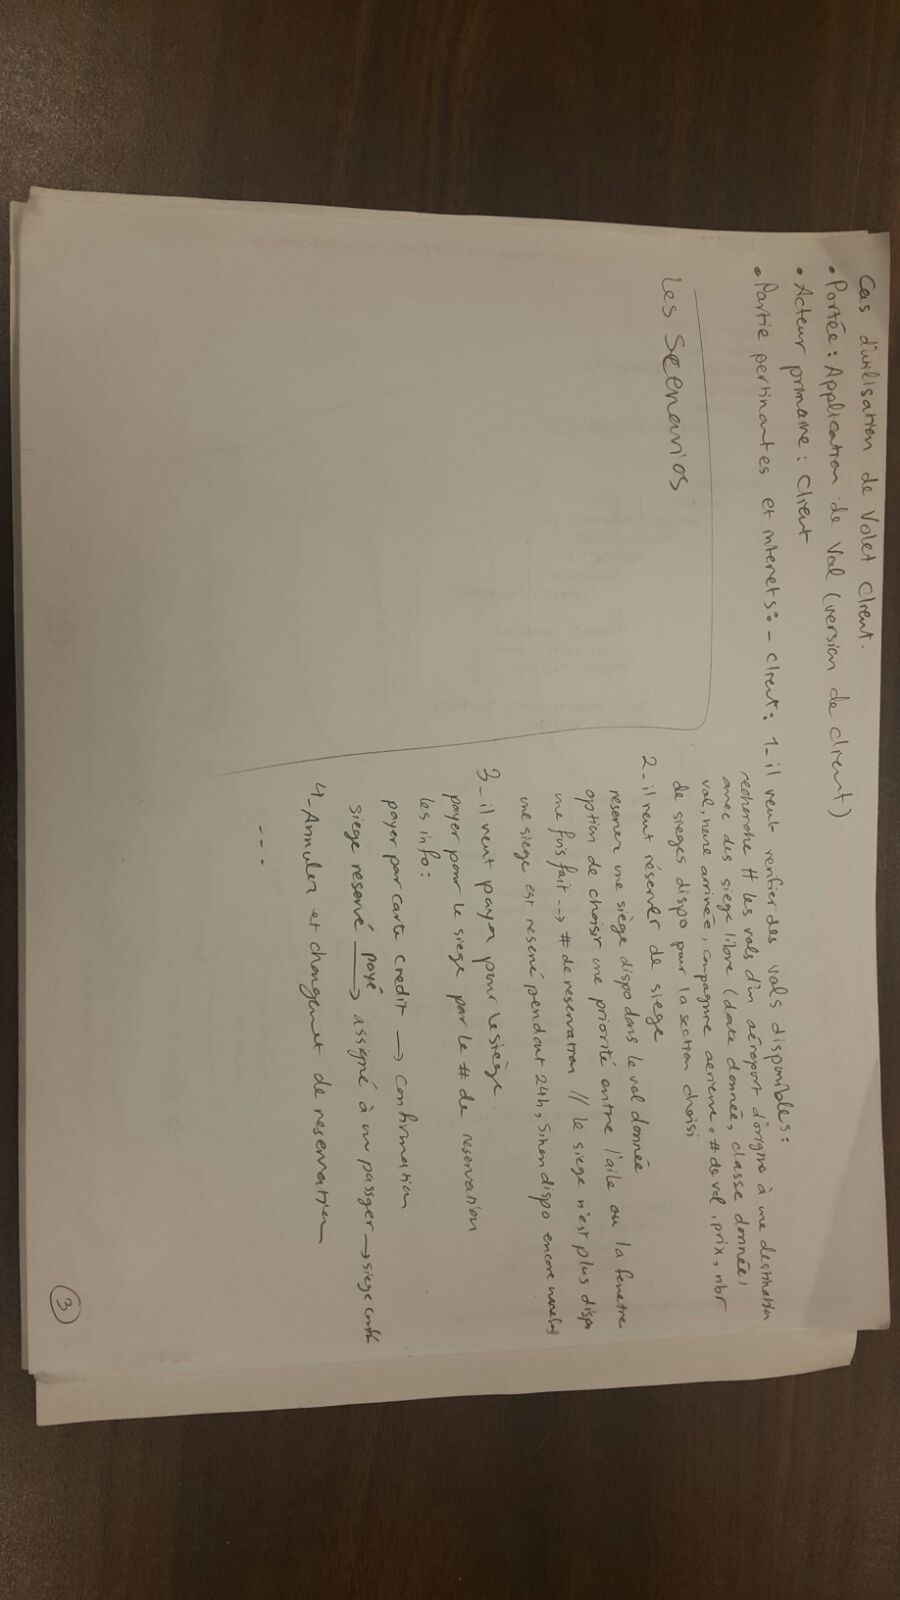 Cas d'utilisation de Volet Client.
• Portée : Application de Vol (version de client)
• Acteur primaire : Client
• Partie pertinantes et interets : - Client : 1- il veut verifier des vols disponibles :
recherche # les vols d'un aéroport d'origine à une destination
avec des siege libre (date donnée, classe donnée)
vol, heure arrivée, compagnie aerienne, # de vol, prix, nbr
de sieges dispo pour la section choisi
Les Scenarios
2- il veut réserver de siege
reserver une siège dispo dans le vol donnée
option de choisir une priorité entre l'aile ou la fenetre
une fois fait --> # de reservation // le siege n'est plus dispo
une siege est reservé pendant 24h, Sinon dispo encore
3- il veut payer pour le siège
payer pour le siege par le # de reservation
les info :
payer par carte credit → confirmation
siege reservé payé → assigné à un passger → siege conf
4- Annuler et changemet de reservation
---
3